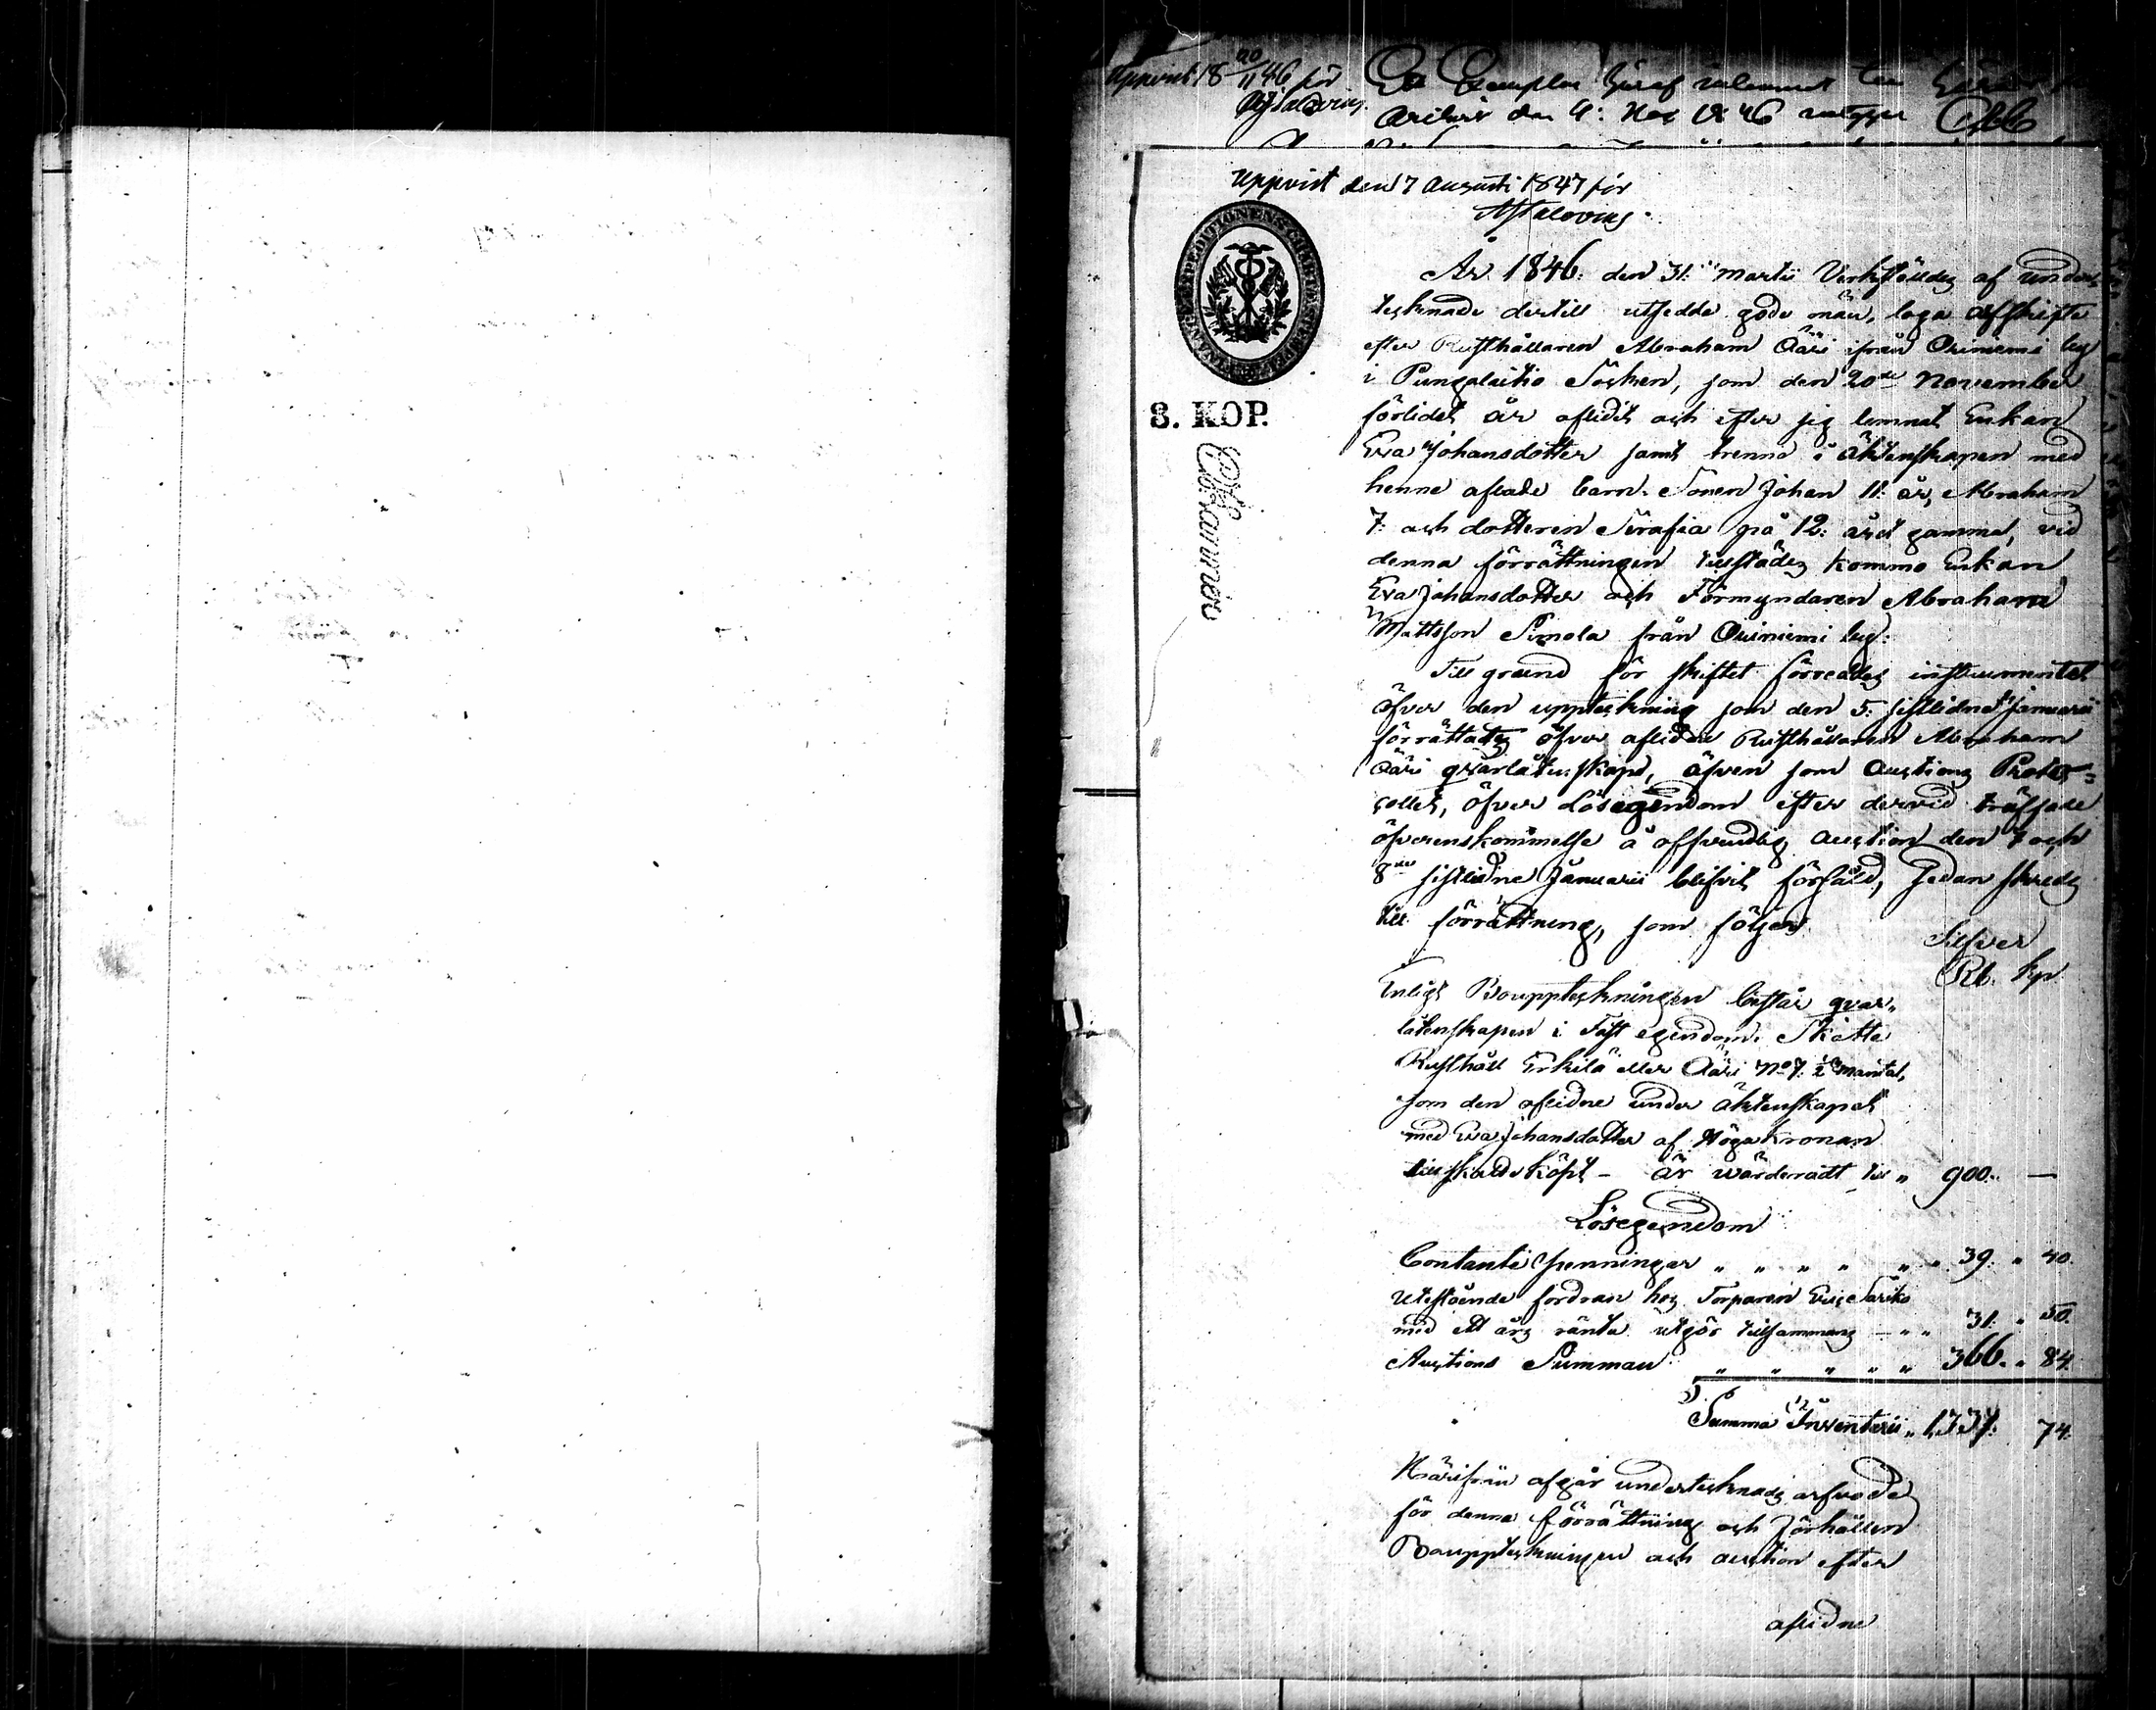 Uppvist 18 20/11 46 för
Aflaloving.
Ett Exemplar häraf inlemnat
Archivet den 9: Nov 1846
Uppvist den 7 Augusti 1847 för
Aflaloving.
FINANS EXPEDITIONENS CHARTÆ
8. KOP.
År 1846. den 31: Martii Verkställdes af under-
tecknade dertill utsedde gode män, laga arfskifte
efter Rusthållaren Abraham Ääri ifrån Oriniemi by
i Pungalaitio Socken, som den 20de November
förlidet år aflidit och efter sig lemnat Enkan
Eva Johansdotter samt trenne i äktenskapen med
henne aflade barn. Sonen Johan 11: år, Abraham
7: och dotteren Serafia på 12: året gammal, vid
denna förrättningen tillstädes kommo Enkan
Eva Johansdotter och Förmyndaren Abraham
Mattsson Simola från Oriniemi by:
Till grund för skiftet förreades instrumentet
öfver den uppteckning som den 5: sistlidne Januarii
förrättades öfver aflidne Rusthållaren Abraham
Ääri qvarlåtenskaps, äfven som Auctions Proto-
collet, öfver Lösegendom efter dervid träffade
öfverenskommelse å offentlig Auction den 7 och
8de sistlidne Januarii blifvit försåld, Sedan skreds
till förrättning, som följer
Silfver
Rb. kp
Enligt Bouppteckningen består qvar-
låtenskapen i Fast egendom. Skatte
Rusthåll Erkilä eller Ääri No 7. 1/2 mantal,
som den aflidne under äktenskapet
med Eva Johansdotter af Höga Kronan
till skatte köpt – är wärderadt till " 900. –
Lösegendom
Contante penningar " " " " " " 39. " 40.
Utestående fordran hos Torparen Eric
med ett års ränta utgör tillsammans – " " 31. " 50.
Auctions Summan " " " " " 366. " 84.
Summa Inventarii " 1,337. 74.
Härifrån afgår undertecknads arfvode
för denna förrättning och förhållen
Bouppteckningen och auction efter
aflidne